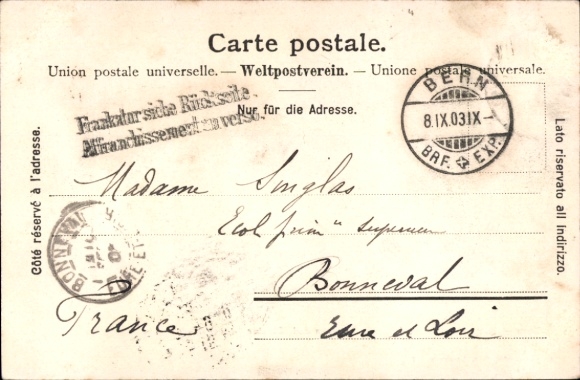 Carte postale.
Union postale universelle. — Weltpostverein. — Unione postale universale.
Nur für die Adresse.
Frankatur siehe Rückseite.
Affranchissement au verso.
BERN
8.IX.03 IX-
BRF. EXP.
Côté réservé à l'adresse.
Lato riservato all indirizzo.
Madame
Ecol prim^re superieure
Bonneval
BONNEVAL
France
Eure et Loir